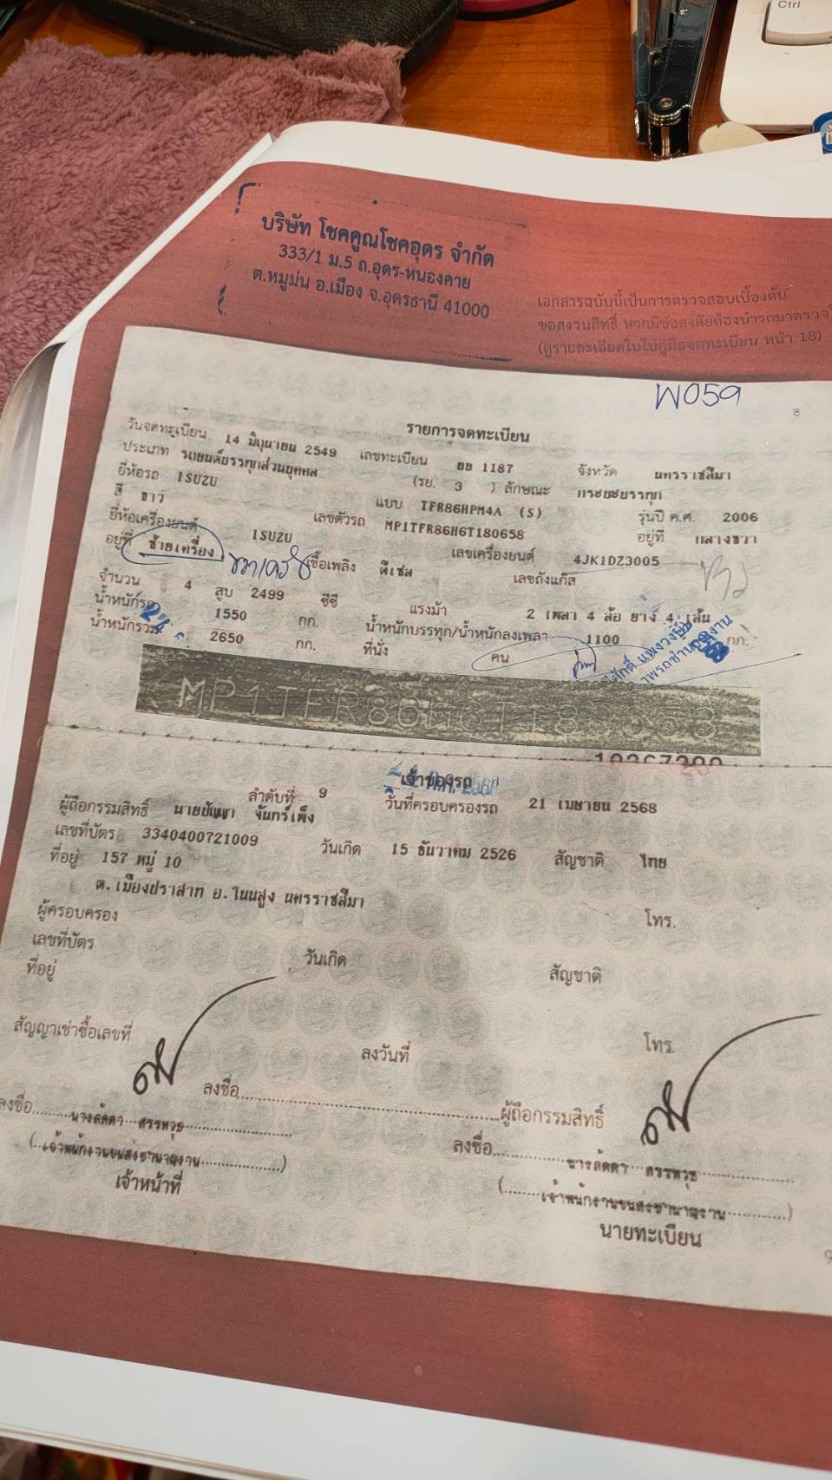 Ctrl
บริษัท โชคคูณโชคอุดร จำกัด
333/1 ม.5 ถ.อุดร-หนองคาย
ต.หมูม่น อ.เมือง จ.อุดรธานี 41000
เอกสารฉบับนี้เป็นการตรวจสอบเบื้องต้น
ขอสงวนสิทธิ์ หากมีข้อสงสัยต้องนำรถมาตรวจ
(ดูรายละเอียดในใบคู่มือจดทะเบียน หน้า 18)
W059
8
รายการจดทะเบียน
วันจดทะเบียน 14 มิถุนายน 2549 เลขทะเบียน ยย 1187 จังหวัด นครราชสีมา
ประเภท รถยนต์บรรทุกส่วนบุคคล (รย. 3 ) ลักษณะ กระบะบรรทุก
ยี่ห้อรถ ISUZU แบบ TFR86HPM4A (S) รุ่นปี ค.ศ. 2006
สี ขาว เลขตัวรถ MP1TFR86H6T180658 อยู่ที่ กลางขวา
ยี่ห้อเครื่องยนต์ ISUZU เลขเครื่องยนต์ 4JK1DZ3005
อยู่ที่ ซ้ายเครื่อง เชื้อเพลิง ดีเซล เลขถังแก๊ส
จำนวน 4 สูบ 2499 ซีซี แรงม้า 2 เพลา 4 ล้อ ยาง 4 เส้น
น้ำหนักรถ 1550 กก. น้ำหนักบรรทุก/น้ำหนักลงเพลา 1100 กก.
น้ำหนักรวม 2650 กก. ที่นั่ง คน
MP1TFR86H6T180658
เจ้าของรถ
ลำดับที่ 9 วันที่ครอบครองรถ 21 เมษายน 2568
ผู้ถือกรรมสิทธิ์ นายปัญญา จันทร์เพ็ง
เลขที่บัตร 3340400721009 วันเกิด 15 ธันวาคม 2526 สัญชาติ ไทย
ที่อยู่ 157 หมู่ 10
ต.เมืองปราสาท อ.โนนสูง นครราชสีมา
โทร.
ผู้ครอบครอง
เลขที่บัตร วันเกิด สัญชาติ
ที่อยู่
โทร.
สัญญาเช่าซื้อเลขที่ ลงวันที่
ลงชื่อ ผู้ถือกรรมสิทธิ์
ลงชื่อ นางลัดดา สรรหวุธ
(เจ้าพนักงานขนส่งชำนาญงาน)
เจ้าหน้าที่
ลงชื่อ นางลัดดา สรรหวุธ
(เจ้าพนักงานขนส่งชำนาญงาน)
นายทะเบียน